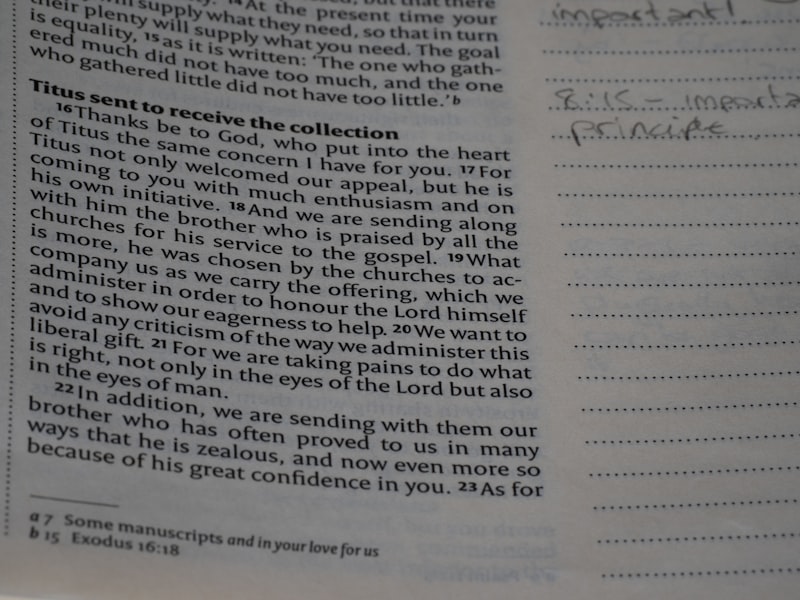 14 At the present time your
their plenty will supply what they need, so that in turn
will supply what you need. The goal
is equality, 15 as it is written: 'The one who gath-
ered much did not have too much, and the one
who gathered little did not have too little.' b
Titus sent to receive the collection
16 Thanks be to God, who put into the heart
of Titus the same concern I have for you. 17 For
Titus not only welcomed our appeal, but he is
coming to you with much enthusiasm and on
his own initiative. 18 And we are sending along
with him the brother who is praised by all the
churches for his service to the gospel. 19 What
is more, he was chosen by the churches to ac-
company us as we carry the offering, which we
administer in order to honour the Lord himself
and to show our eagerness to help. 20 We want to
avoid any criticism of the way we administer this
liberal gift. 21 For we are taking pains to do what
is right, not only in the eyes of the Lord but also
in the eyes of man.
22 In addition, we are sending with them our
brother who has often proved to us in many
ways that he is zealous, and now even more so
because of his great confidence in you. 23 As for
a 7 Some manuscripts and in your love for us
b 15 Exodus 16:18
important!
8:15 - importa
principle